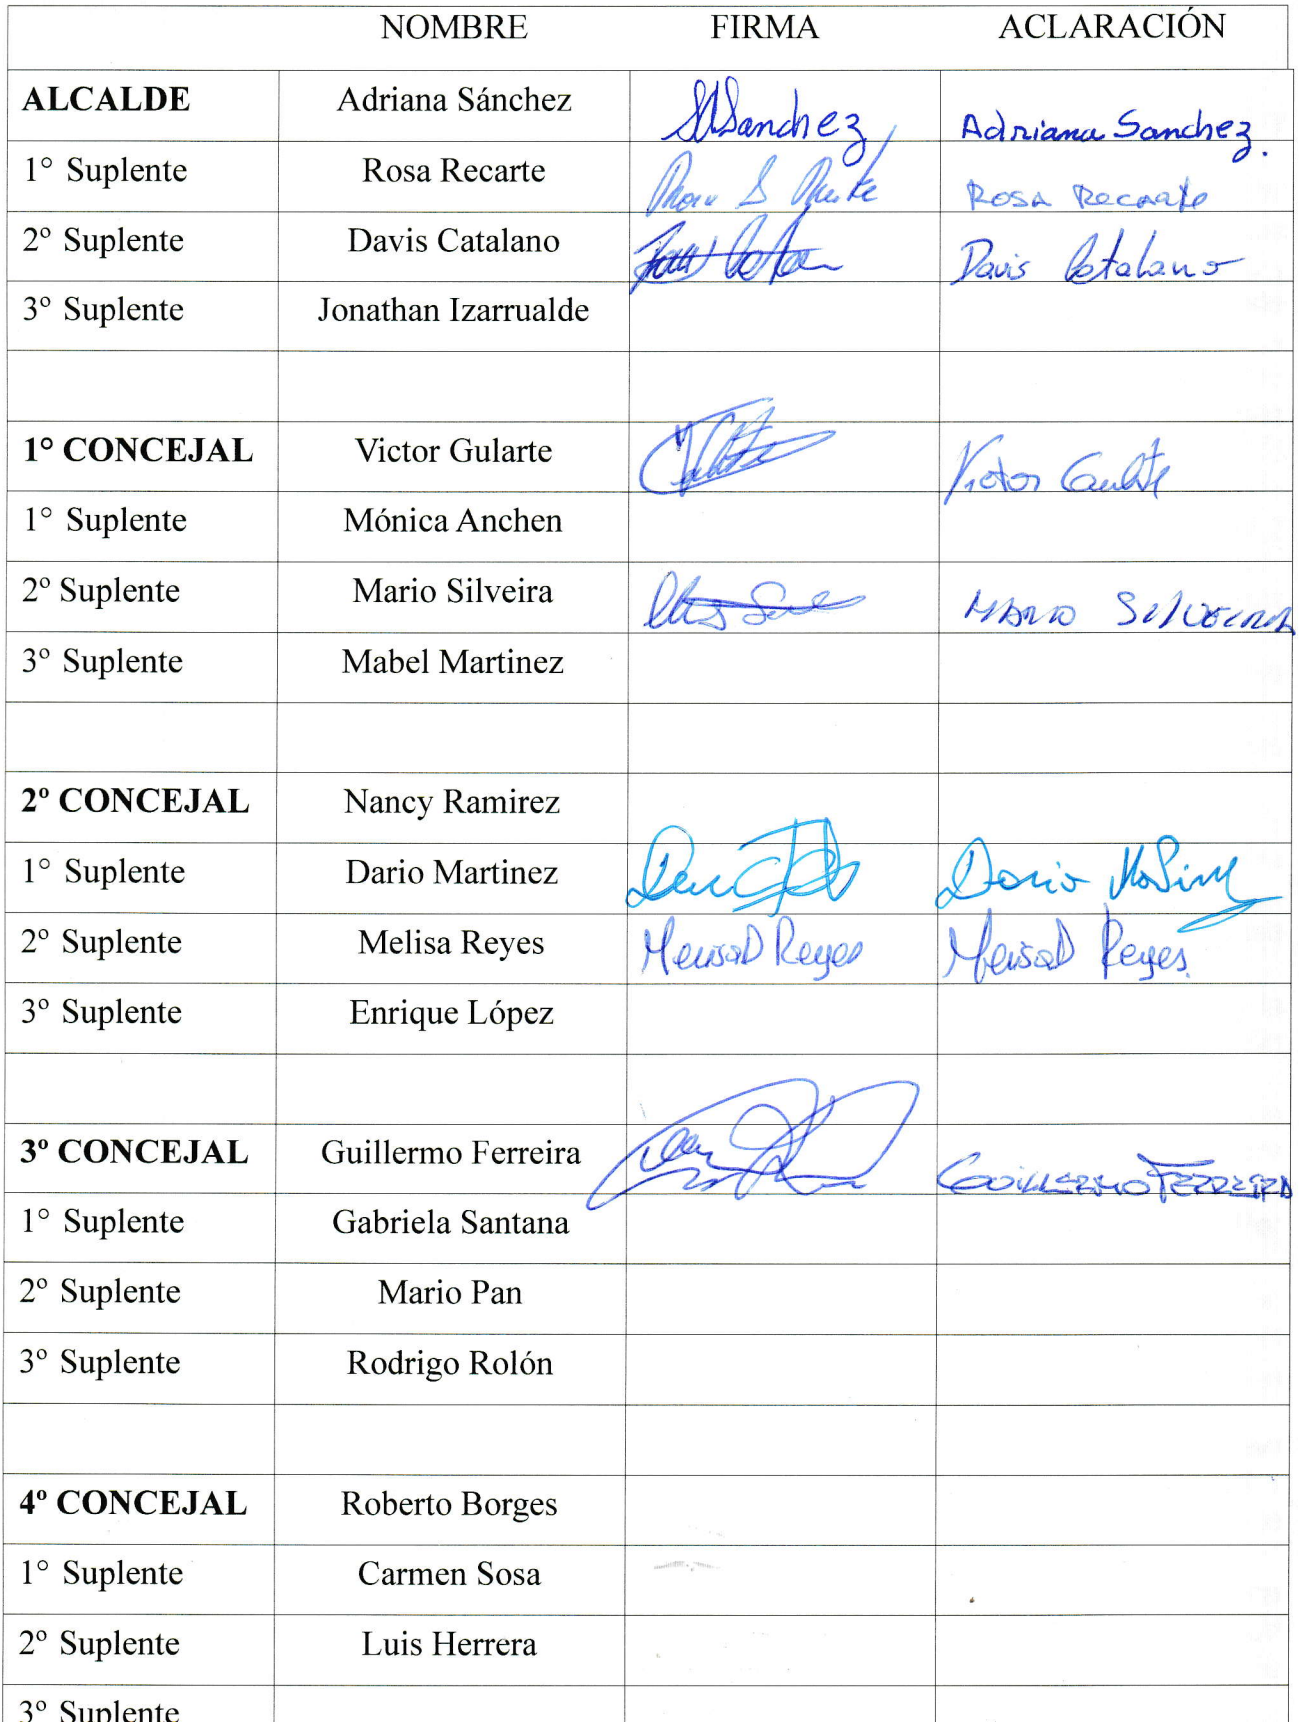 NOMBRE FIRMA ACLARACIÓN
ALCALDE Adriana Sánchez SASanchez Adriana Sanchez.
1° Suplente Rosa Recarte Rosa Recarte
2º Suplente Davis Catalano Davis Catalano
3º Suplente Jonathan Izarrualde
1° CONCEJAL Victor Gularte Victor Gularte
1° Suplente Mónica Anchen
2º Suplente Mario Silveira MARIO SILVEIRA
3º Suplente Mabel Martinez
2º CONCEJAL Nancy Ramirez
1° Suplente Dario Martinez Dario
2º Suplente Melisa Reyes Reyes Reyes
3º Suplente Enrique López
3º CONCEJAL Guillermo Ferreira GUILLERMO FERREIRA
1° Suplente Gabriela Santana
2º Suplente Mario Pan
3º Suplente Rodrigo Rolón
4º CONCEJAL Roberto Borges
1° Suplente Carmen Sosa
2º Suplente Luis Herrera
3º Suplente